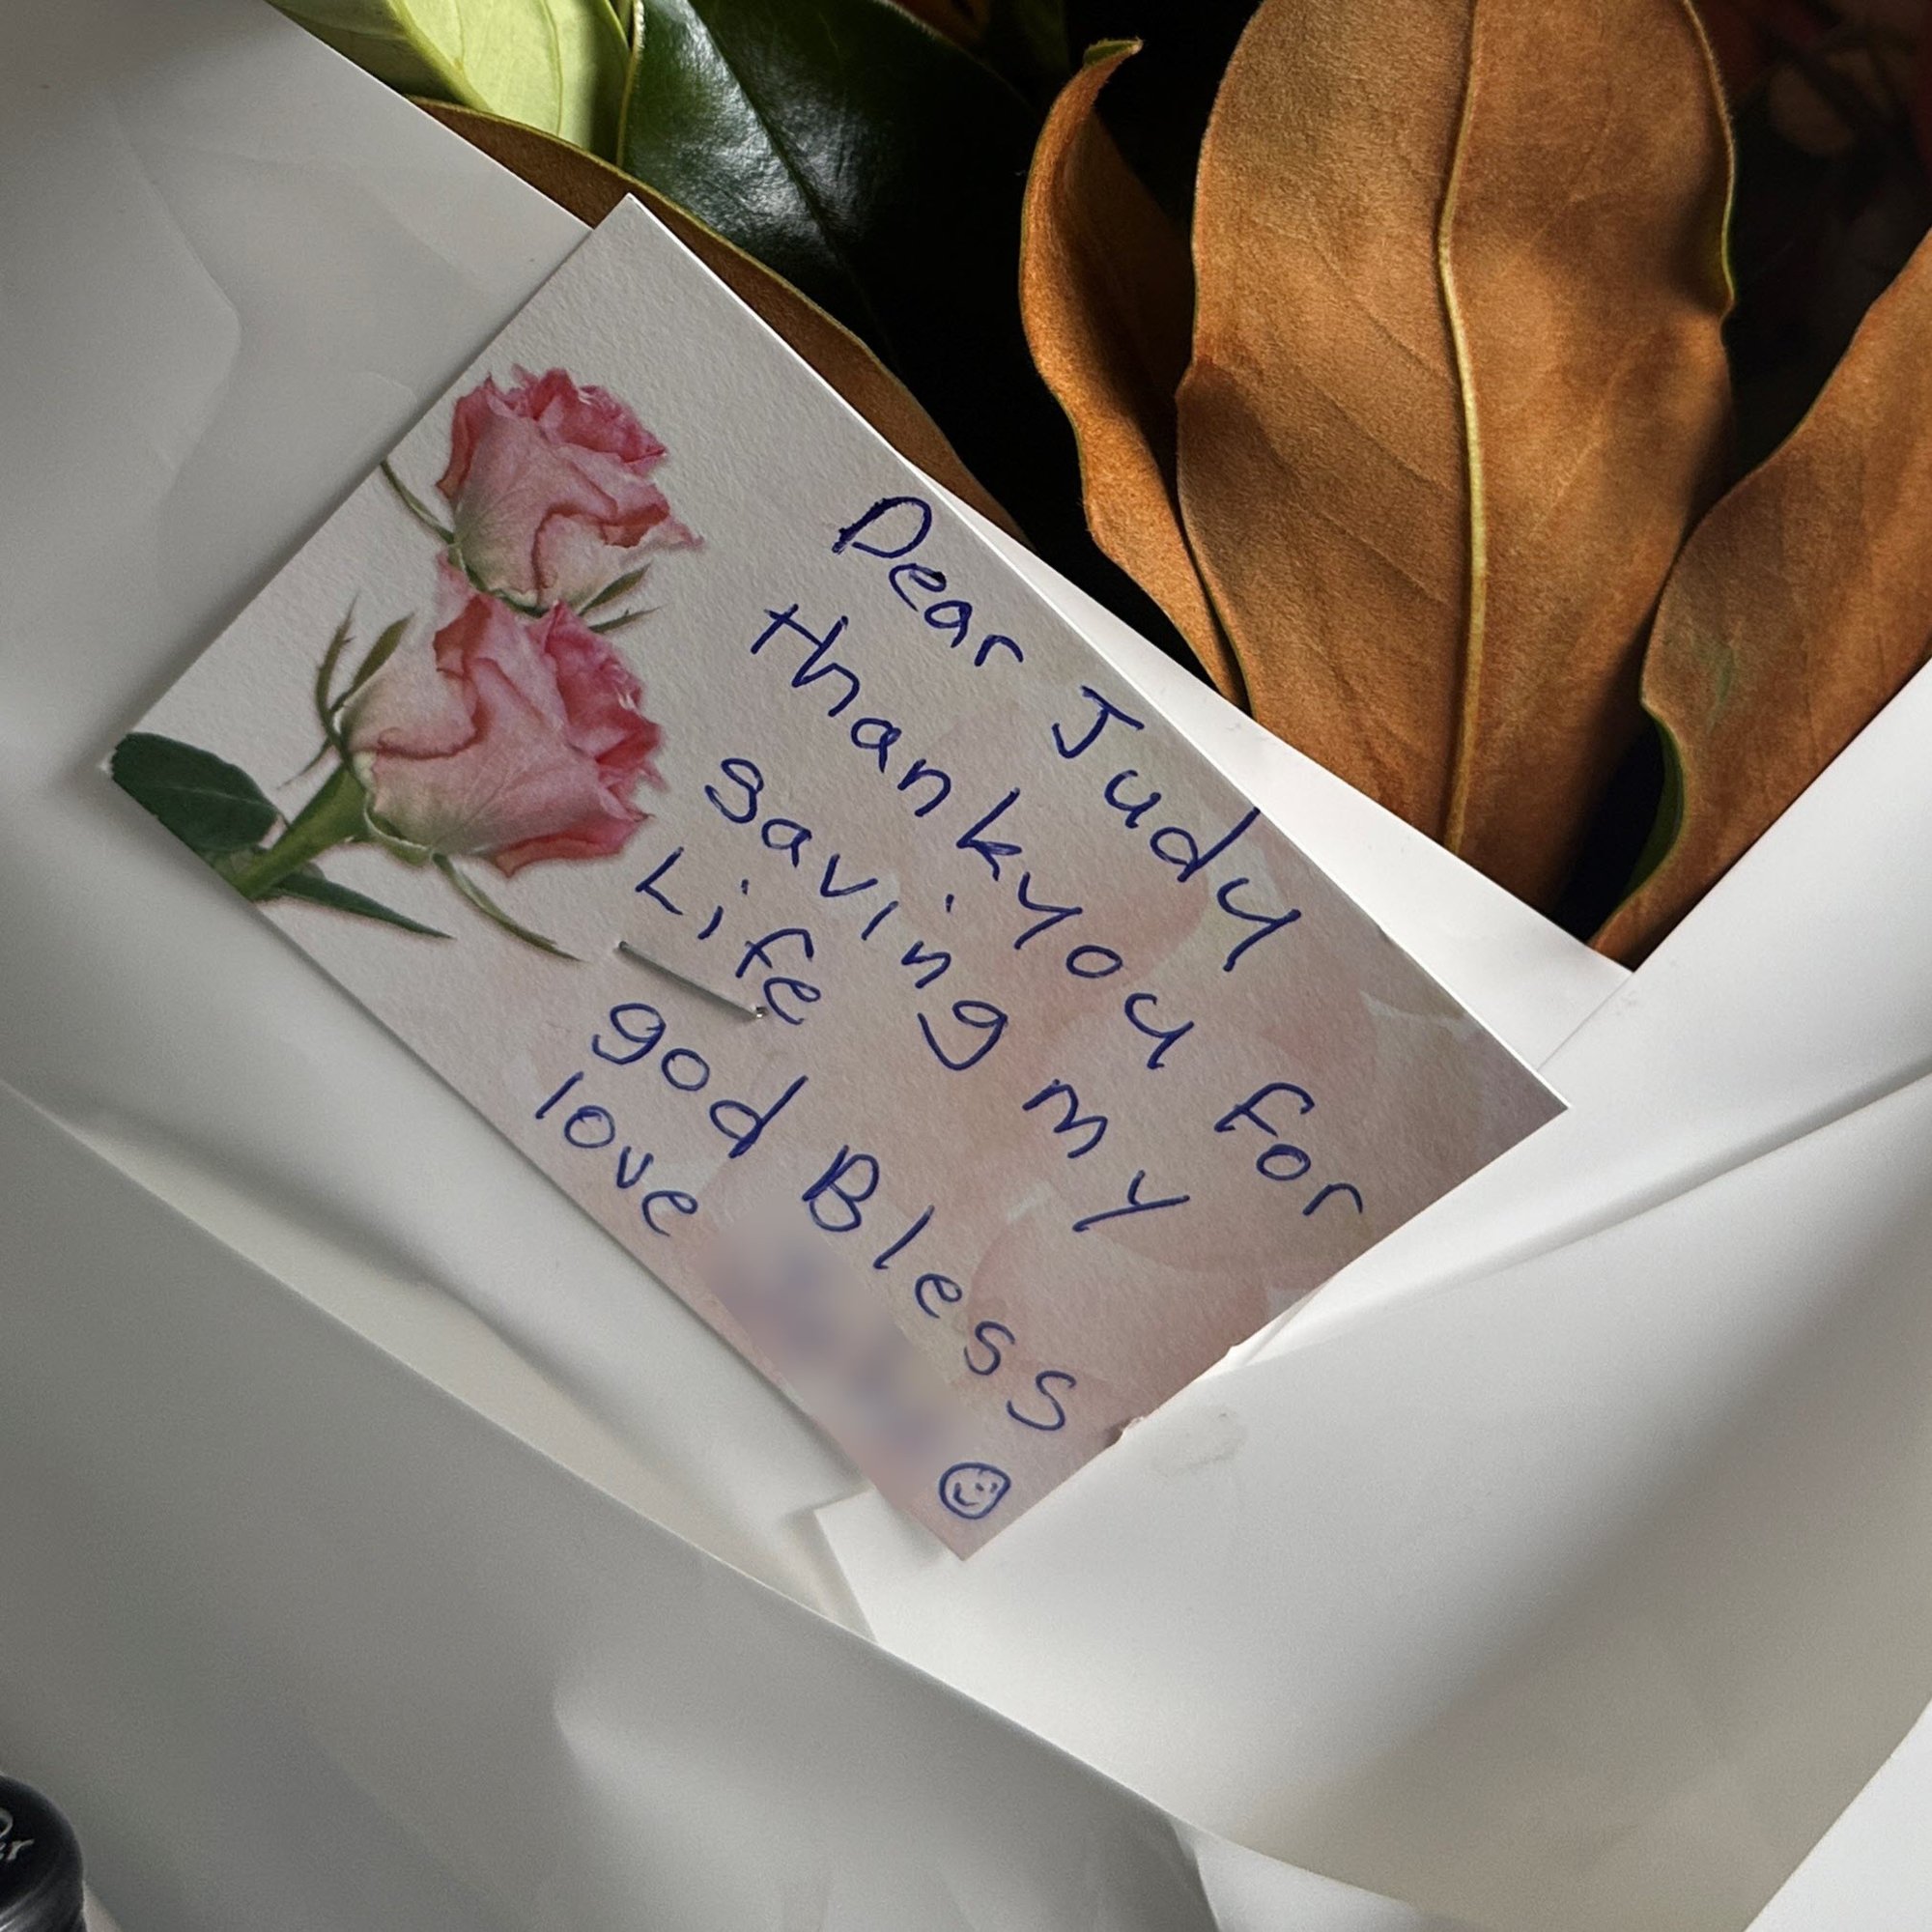 Dear Judy
thankyou for
saving my
Life
god Bless
love